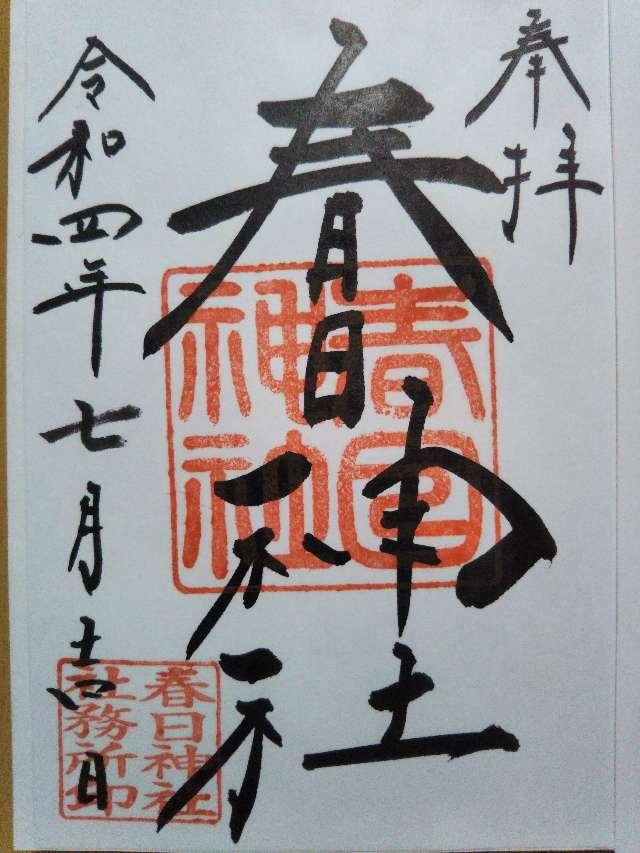 奉拝
春日神社
令和四年七月吉日
春日神社
春日神社
社務所印